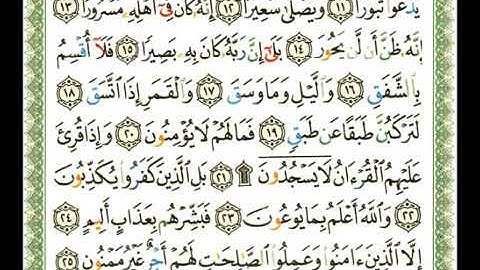 يَدْعُوا۟ ثُبُورًا ١١ وَيَصْلَىٰ سَعِيرًا ١٢ إِنَّهُۥ كَانَ فِىٓ أَهْلِهِۦ مَسْرُورًا ١٣
إِنَّهُۥ ظَنَّ أَن لَّن يَحُورَ ١٤ بَلَىٰٓ إِنَّ رَبَّهُۥ كَانَ بِهِۦ بَصِيرًا ١٥ فَلَآ أُقْسِمُ
بِالشَّفَقِ ١٦ وَالَّيْلِ وَمَا وَسَقَ ١٧ وَالْقَمَرِ إِذَا اتَّسَقَ ١٨
لَتَرْكَبُنَّ طَبَقًا عَن طَبَقٍ ١٩ فَمَا لَهُمْ لَا يُؤْمِنُونَ ٢٠ وَإِذَا قُرِئَ
عَلَيْهِمُ الْقُرْءَانُ لَا يَسْجُدُونَ ۩ ٢١ بَلِ الَّذِينَ كَفَرُوا۟ يُكَذِّبُونَ
٢٢ وَاللَّهُ أَعْلَمُ بِمَا يُوعُونَ ٢٣ فَبَشِّرْهُم بِعَذَابٍ أَلِيمٍ ٢٤
إِلَّا الَّذِينَ ءَامَنُوا۟ وَعَمِلُوا۟ الصَّٰلِحَٰتِ لَهُمْ أَجْرٌ غَيْرُ مَمْنُونٍ ٢٥